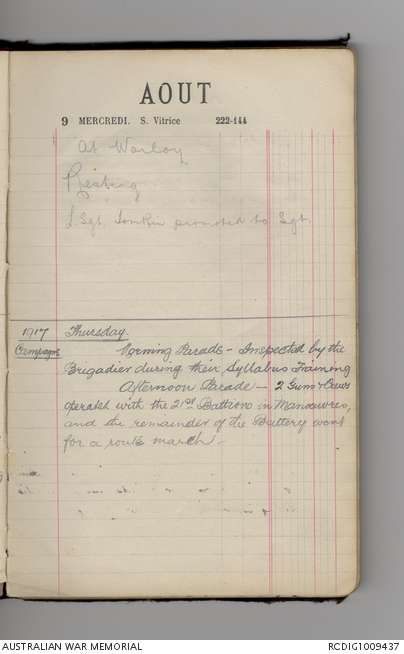 AOUT
9 MERCREDI. S. Vitrice 222-144
At Warloy
Resting
L. Sgt. promoted to Sgt.
1917 Thursday.
Campagne Morning Parade - Inspected by the
Brigadier during their Syllabus Training
Afternoon Parade - 2 Guns & Crews
operated with the 21st Battion in Manouvres,
and the remainder of the Battery went
for a route march.
AUSTRALIAN WAR MEMORIAL
RCDIG1009437